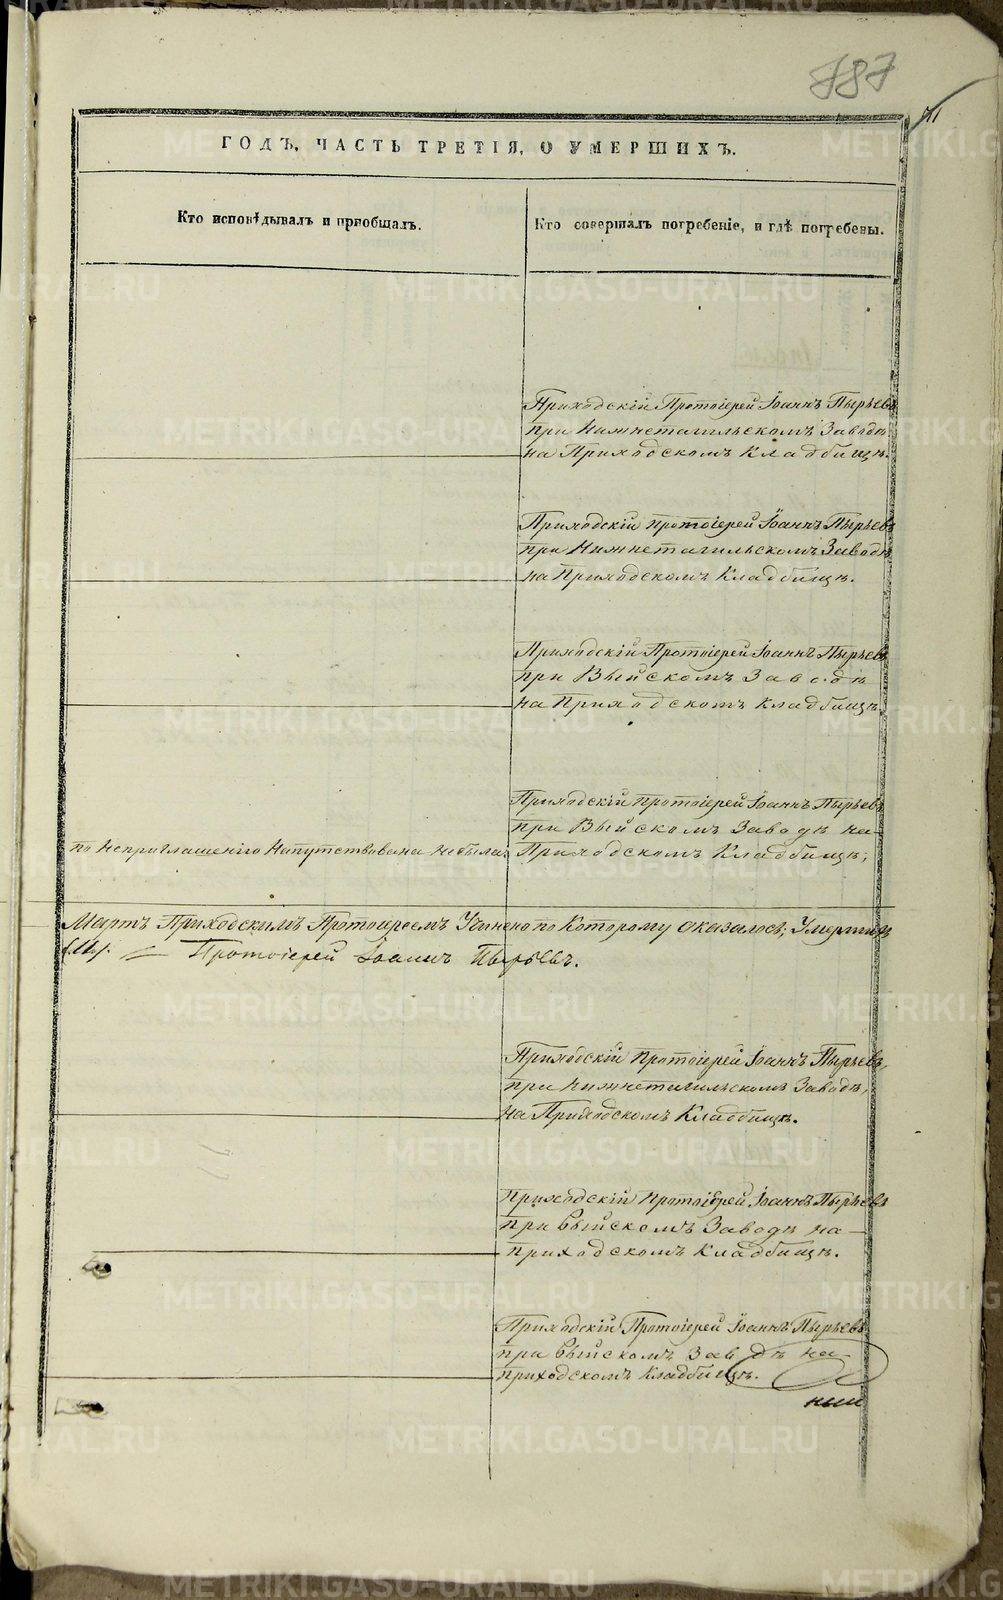 787
ГОДЪ, ЧАСТЬ ТРЕТІЯ, О УМЕРШИХЪ.
Кто исповѣдывалъ и пріобщалъ.
Кто совершалъ погребеніе, и гдѣ погребены.
Приходскій Протоіерей Іоаннъ Пырьевъ
при Нижнетагильскомъ Заводѣ
на Приходскомъ Кладбищѣ.
Приходскій Протоіерей Іоаннъ Пырьевъ
при Нижнетагильскомъ Заводѣ
на Приходскомъ Кладбищѣ.
Приходскій Протоіерей Іоаннъ Пырьевъ
при Выйскомъ Заводѣ
на Приходскомъ Кладбищѣ.
по Неприглашенію Напутствована небыла
Приходскій Протоіерей Іоаннъ Пырьевъ
при Выйскомъ Заводѣ на
Приходскомъ Кладбищѣ,
Мартъ Приходскимъ Протоіереемъ Учинено по Которому оказалось, Умершихъ
Протоіерей Іоаннъ Пырьевъ.
Приходскій Протоіерей Іоаннъ Пырьевъ,
при Нижнетагильскомъ Заводѣ,
на Приходскомъ Кладбищѣ.
Приходскій Протоіерей Іоаннъ Пырьевъ
при Выйскомъ Заводѣ на
приходскомъ Кладбищѣ.
Приходскій Протоіерей Іоаннъ Пырьевъ
при Выйскомъ Заводѣ на
приходскомъ Кладбищѣ.
ный
METRIKI.GASO-URAL.RU